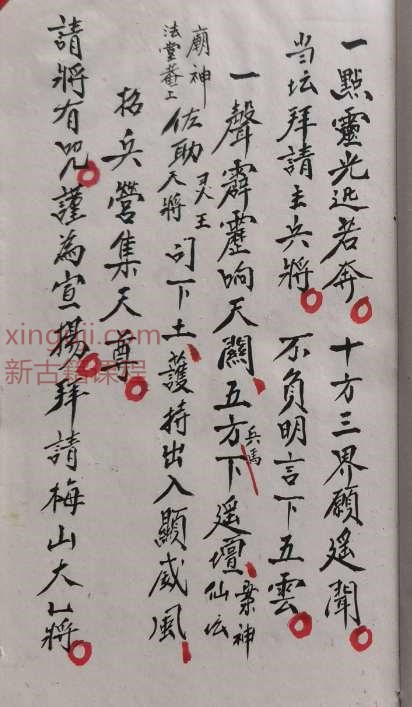 一點灵光迅若奔 十方三界願遥聞
当坛拜請主兵將 不負明言下五雲
一聲霹靂响天闗 五方兵馬下遥壇 衆神仙坛
廟神法堂菴上佐助天將天王 下土護持出入顯威風
招兵營集天尊
請將有咒謹為宣揚拜請梅山大乚將
xingujii.com
新古籍课程